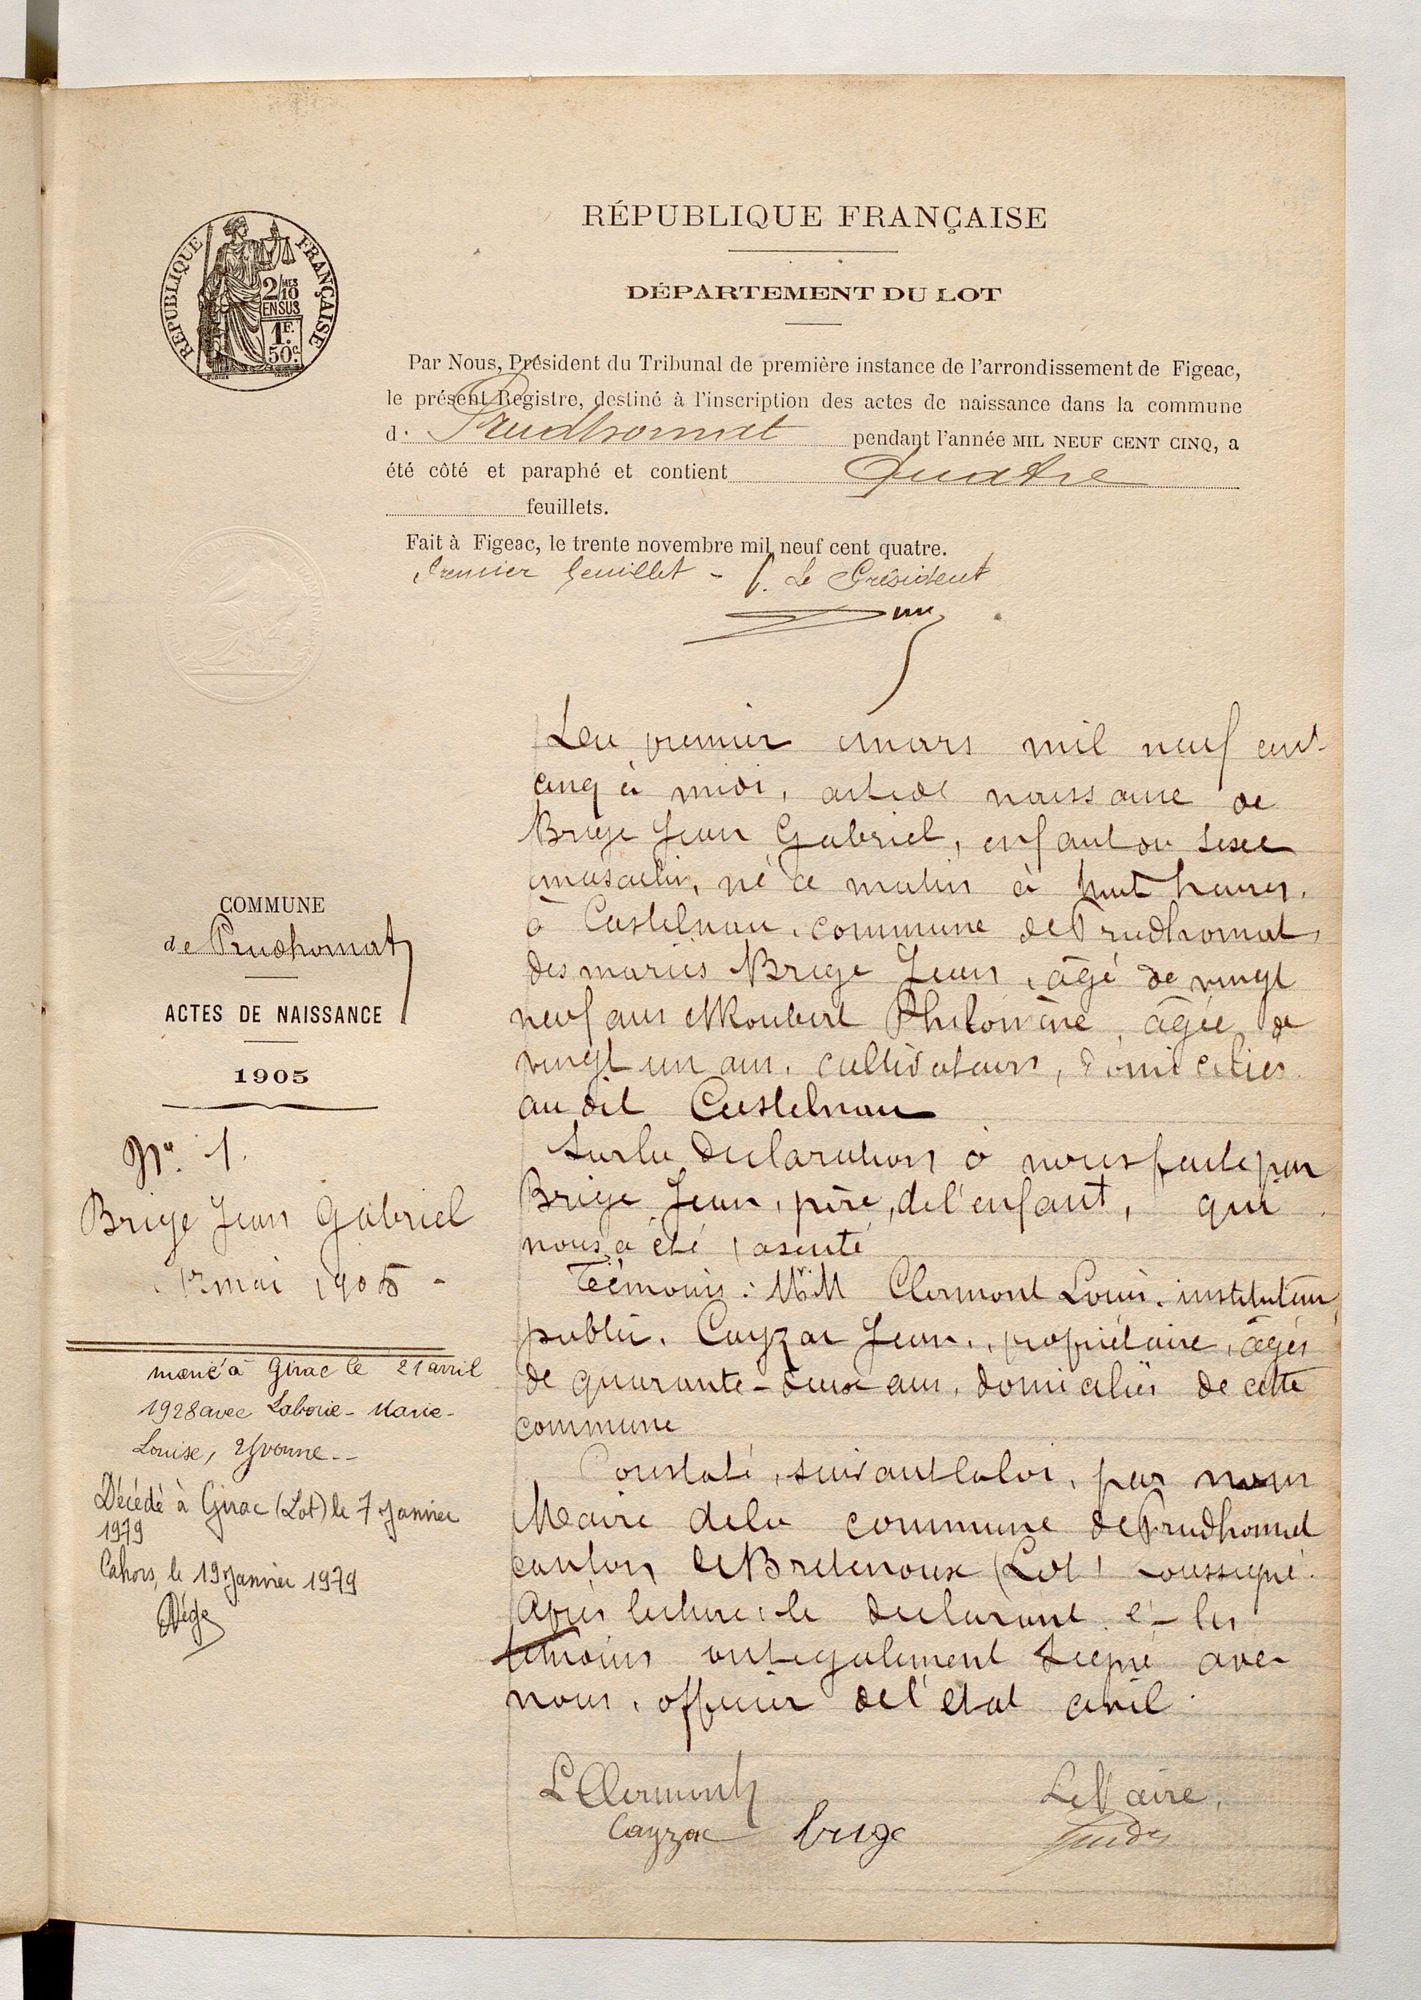 RÉPUBLIQUE FRANÇAISE
DÉPARTEMENT DU LOT
RÉPUBLIQUE FRANÇAISE
2/10 MES
EN SUS
1F.
50c.
Par Nous, Président du Tribunal de première instance de l'arrondissement de Figeac,
le présent Registre, destiné à l'inscription des actes de naissance dans la commune
d. Prudhomat pendant l'année MIL NEUF CENT CINQ, a
été côté et paraphé et contient Quatre
feuillets.
Fait à Figeac, le trente novembre mil neuf cent quatre.
Premier feuillet - P. Le Président
COMMUNE
de Prudhomat
ACTES DE NAISSANCE
1905
No. 1.
Brige Jean Gabriel
1905 -
marié à Girac le 21 avril
1928 avec Laborie - Marie -
Louise, Yvonne --
Décédé à Girac (Lot) le 7 Janvier
1979
Cahors, le 19 Janvier 1979
L'an premier mars mil neuf cent
cinq à midi, acte de naissance de
Brige Jean Gabriel, enfant du sexe
masculin, né ce matin à huit heures.
à Castelnau, commune de Prudhomat,
des mariés Brige Jean, âgé de vingt
neuf ans et Roubert Philomène âgée de
vingt un ans, cultivateurs, domiciliés
au dit Castelnau
Sur la déclaration à nous faite par
Brige Jean, père, de l'enfant, qui
nous a été présenté
Témoins : Mr. M Clermont Louis, instituteur
public, Cayzac Jean, propriétaire, âgés
de quarante-deux ans, domiciliés de cette
commune
Constaté, suivant la loi, par nous
Maire de la commune de Prudhomat
canton de Bretenoux (Lot) soussigné.
Après lecture, le déclarant et les
témoins ont également signé avec
nous, officier de l'état civil.
L Clermont
Le Maire,
Cayzac
brige